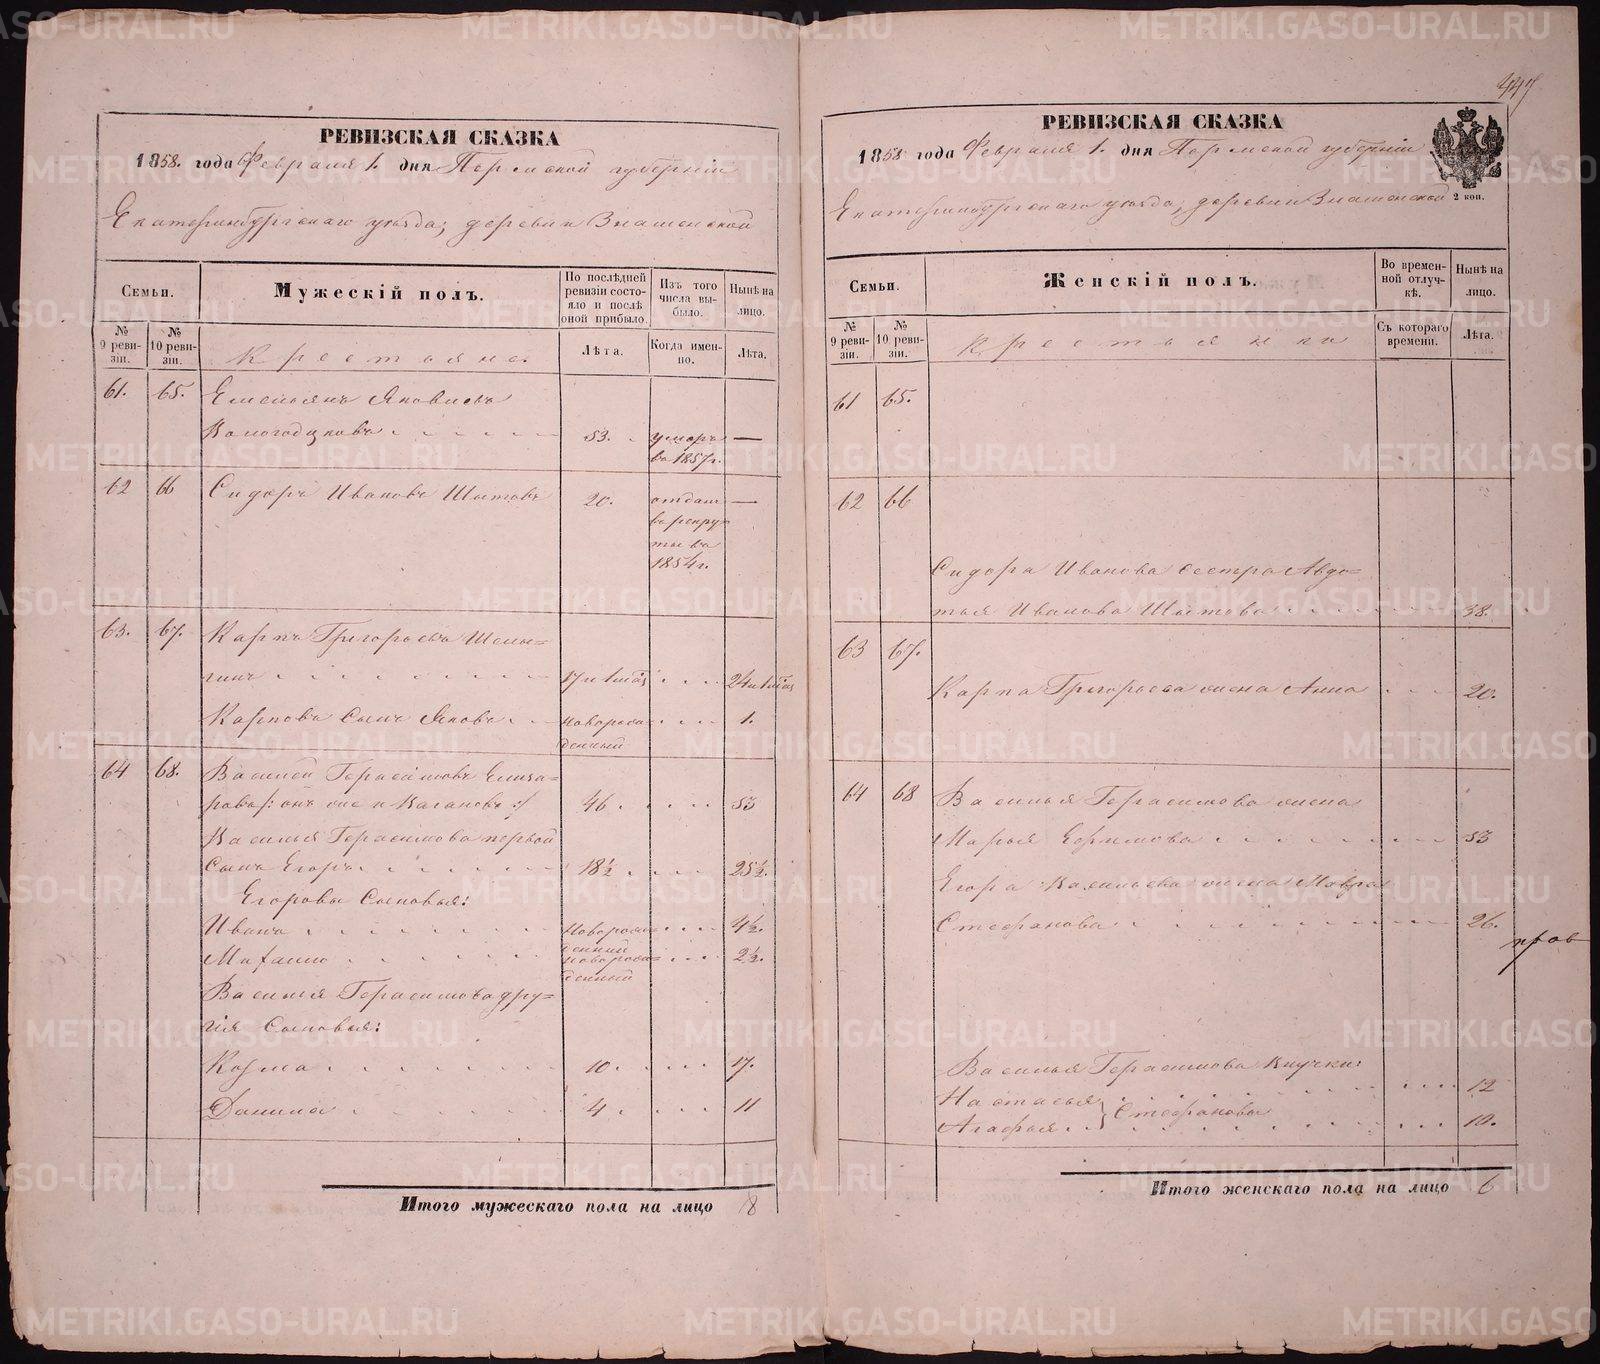 РЕВИЗСКАЯ СКАЗКА
1858. года Февраля 1. дня Пермской губерніи
Екатеринбургскаго уѣзда, деревни Знаменской
Семьи.
Мужескій полъ.
По послѣдней ревизіи состояло и послѣ оной прибыло.
Изъ того числа выбыло.
Нынѣ на лицо.
№ 9 ревизіи.
№ 10 ревизіи.
Крестьяне.
Лѣта.
Когда именно.
Лѣта.
61. 65. Емельянъ Яковлевъ
Вологодцковъ 53. умеръ —
въ 1857 г.
62 66 Сидоръ Ивановъ Шытовъ 20. отданъ —
въ рекру=
ты въ
1854 г.
63. 67. Карпъ Григорьевъ Шелы=
гинъ 17 и 1 мѣс 24 и 1 мѣс
Карповъ сынъ Яковъ новорож= 1.
денный
64 68. Василей Герасимовъ Елиза=
ровъ /: онъ же и Кагановъ :/ 46 53
Василья Герасимова первой
сынъ Егоръ 18½ 25½.
Егоровы сыновья:
Иванъ новорож= 4½.
денный
Михаило новорож= 2½.
денный
Василья Герасимова дру=
гія сыновья:
Козма 10 17.
Данила 4 11
Итого мужескаго пола на лицо 8
447
РЕВИЗСКАЯ СКАЗКА
1858 года Февраля 1. дня Пермской губерніи
2 коп.
Екатеринбургскаго уѣзда, деревни Знаменской
Семьи.
Женскій полъ.
Во временной отлучкѣ.
Нынѣ на лицо.
№ 9 ревизіи.
№ 10 ревизіи.
Крестьянки
Съ котораго времени.
Лѣта.
61 65.
62 66
Сидора Иванова сестра Авдо=
тья Иванова Шытова 38.
63 67.
Карпа Григорьева жена Анна 20.
64 68 Василья Герасимова жена
Марья Ефимова 53
Егора Васильева жена Мавра
Стефанова 26.
Василья Герасимова внучки:
Настасья 12
Агафья } Стефановы 10.
Итого женскаго пола на лицо 6
METRIKI.GASO-URAL.RU